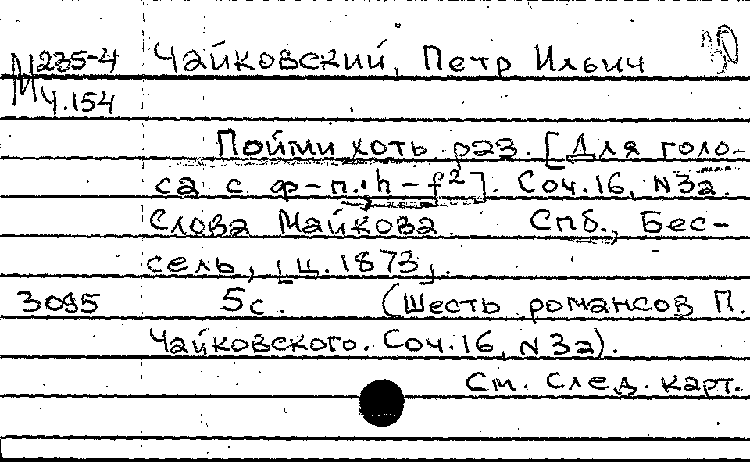 М235-4 Чайковский, Петр Ильич 30
Ч.154
Пойми хоть раз. [Для голо-
са с ф-п.: h-f²]. Соч.16, N3а.
Слова Майкова. Спб., Бес-
сель, [ц. 1873].
3095 5с. (Шесть романсов П.
Чайковского. Соч.16, N3а).
См. след. карт.